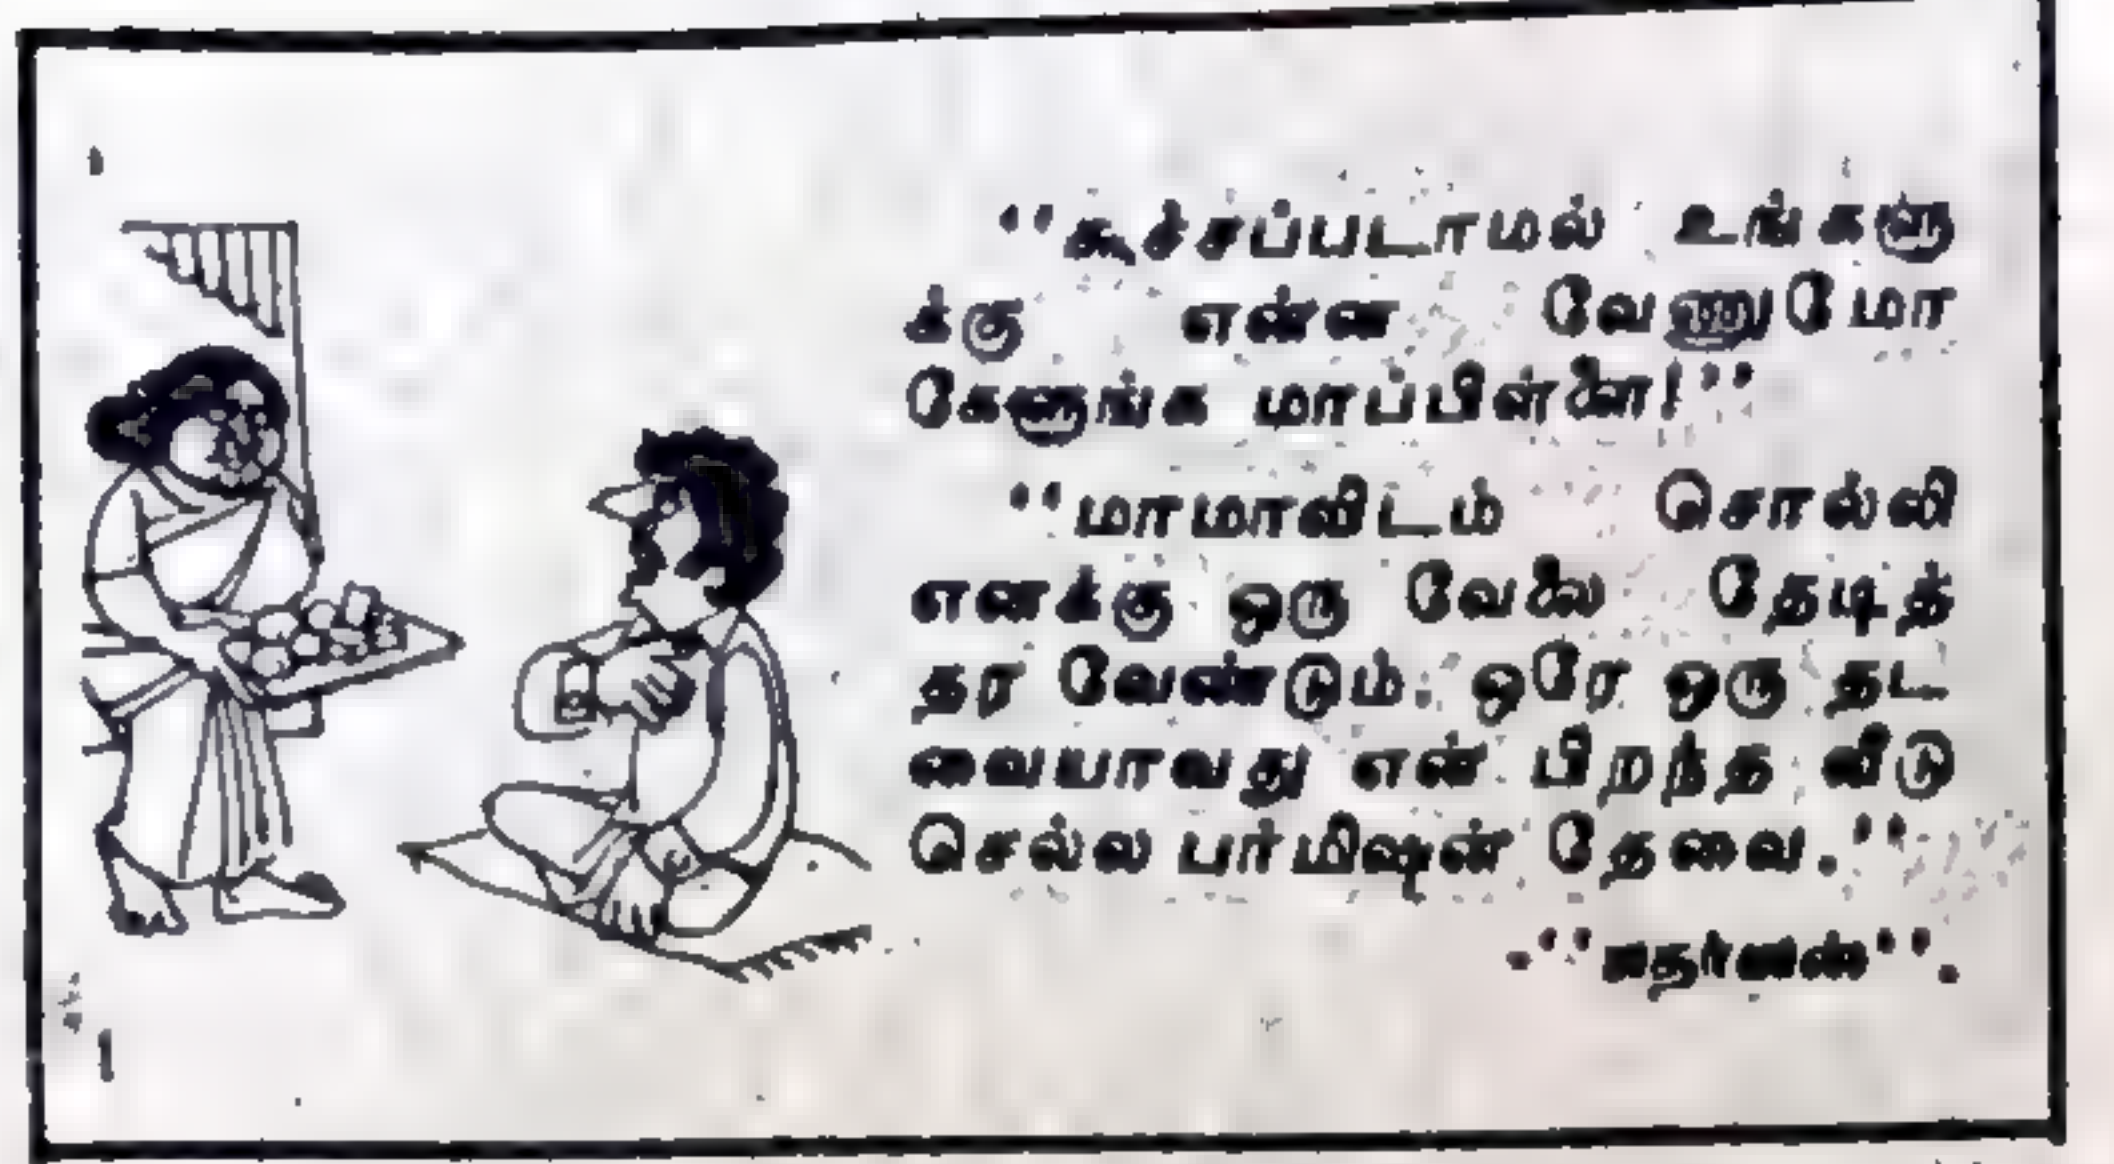 "கூச்சப்படாமல் உங்களு
க்கு என்ன வேணுமோ
கேளுங்க மாப்பிள்ளை!"
"மாமாவிடம் சொல்லி
எனக்கு ஒரு வேலை தேடித்
தர வேண்டும். ஒரே ஒரு தட
வையாவது என் பிறந்த வீடு
செல்ல பர்மிஷன் தேவை."